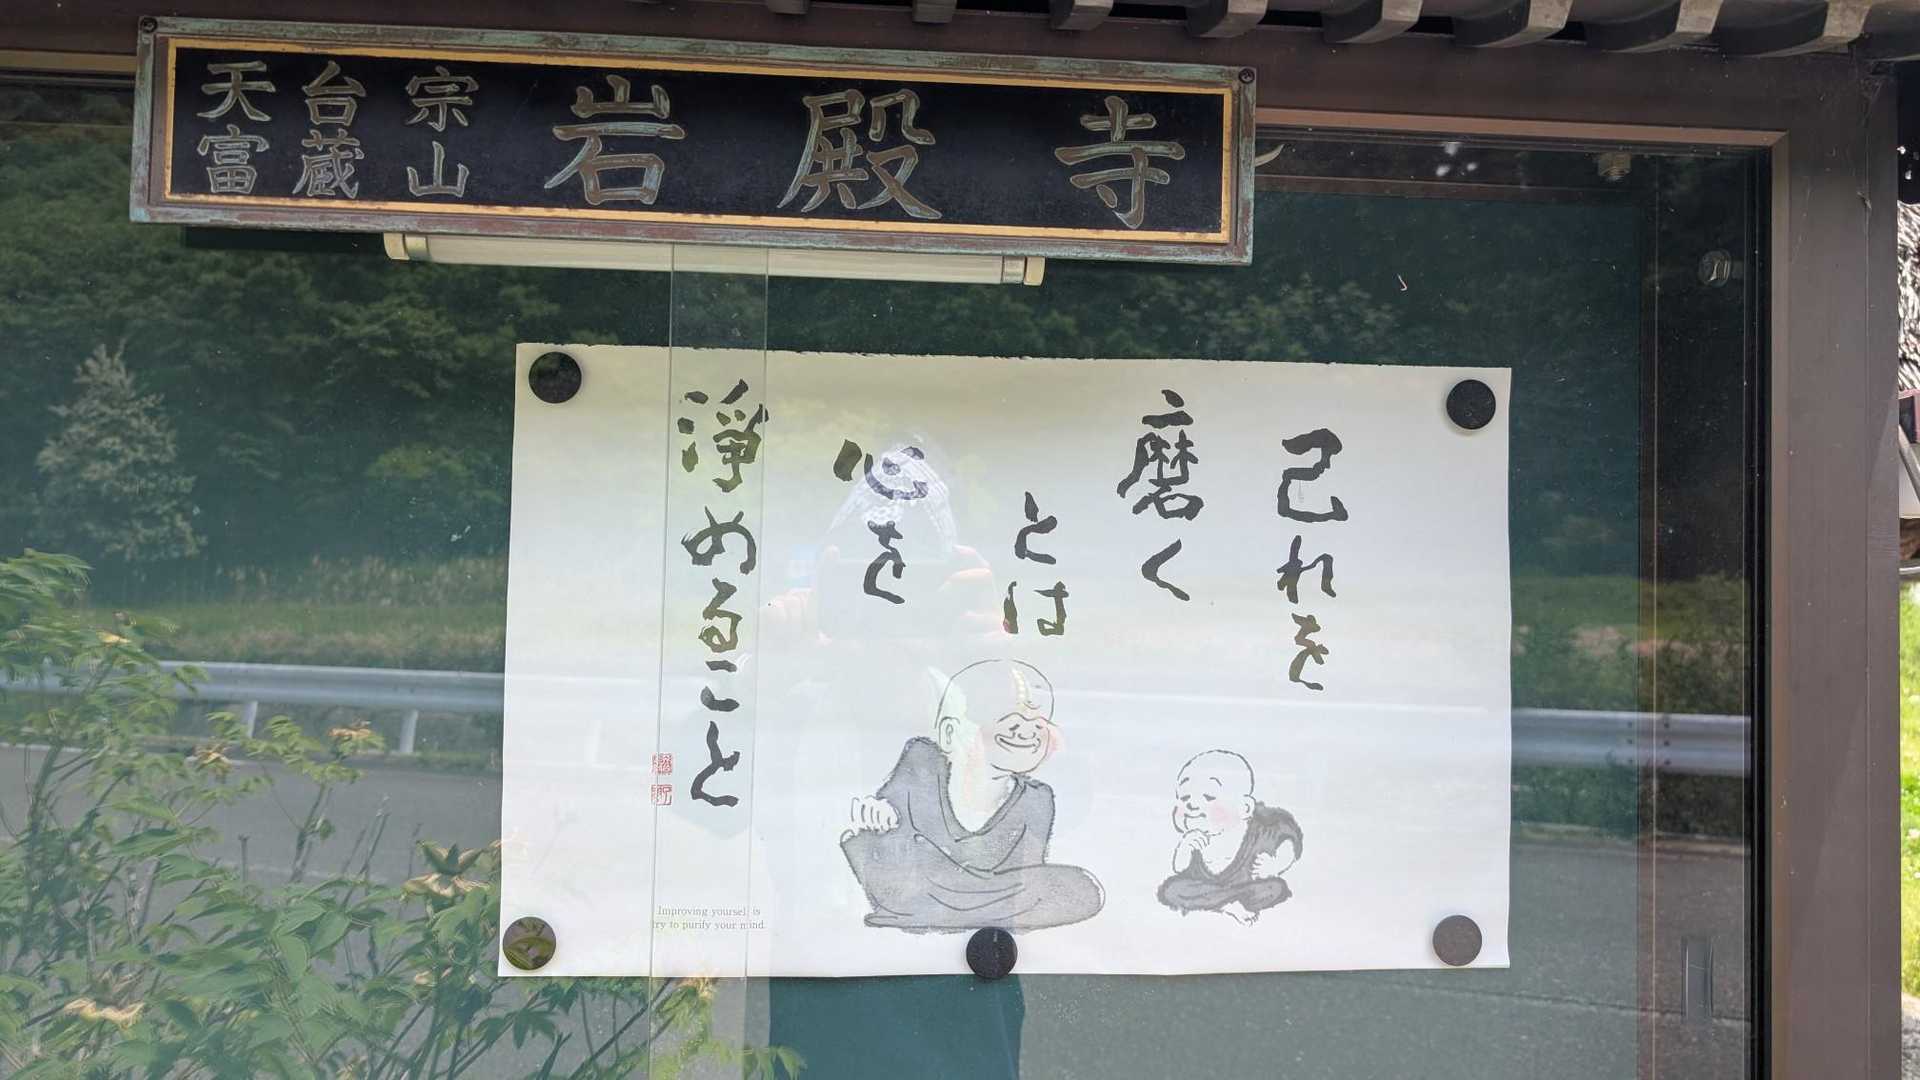 天台宗
富蔵山
岩殿寺
己れを
磨く
とは
心を
淨めること
Improving yourself is
try to purify your mind.